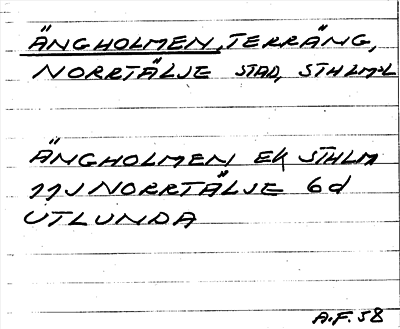 ÄNGHOLMEN, TERRÄNG,
NORRTÄLJE STAD, STHLM:L
ÄNGHOLMEN EK STHLM
11J NORRTÄLJE 6d
UTLUNDA
A.F. 58